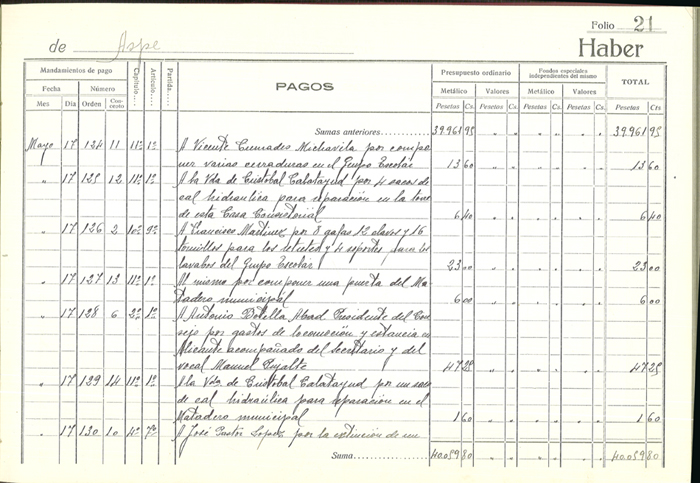 Folio 21
de Aspe
Haber
Mandamientos de pago
Capítulo....
Artículo....
Partida....
PAGOS
Presupuesto ordinario
Fondos especiales independientes del mismo
TOTAL
Fecha Número
Metálico Valores Metálico Valores
Mes Día Orden Con-cepto
Pesetas Cs. Pesetas Cs. Pesetas Cs. Pesetas Cs. Pesetas Cts
Sumas anteriores 39.961 95 " " " " " " 39.961 95
Mayo 17 124 11 11º 1º A Vicente Cremades Michavila por compo
ner varias cerraduras en el Grupo Escolar 13 60 13 60
" 17 125 12 11º 1º A la Vda de Cristobal Calatayud por 4 sacos de
cal hidraulica para reparación en la torre
de esta Casa Consistorial 6 40 6 40
" 17 126 2 10º 9º A Francisco Martinez por 8 gafas 12 clavos y 16
tornillos para los y 4 soportes para los
lavabos del Grupo Escolar 23 00 23 00
" 17 127 13 11º 1º Al mismo por componer una puerta del Ma
tadero municipal 6 00 6 00
" 17 128 6 2º 1º A Antonio Botella Abad Presidente del Con
sejo por gastos de locomoción y estancia en
Alicante acompañado del secretario y del
vocal Manuel 47 25 47 25
" 17 129 14 11º 1º A la Vda de Cristobal Calatayud por un saco
de cal hidraúlica para reparación en el
Matadero municipal 1 60 1 60
" 17 130 10 4º 7º A José Pastor Lopez por la extinción de un
Suma 40.059 80 " " " " " " 40.059 80